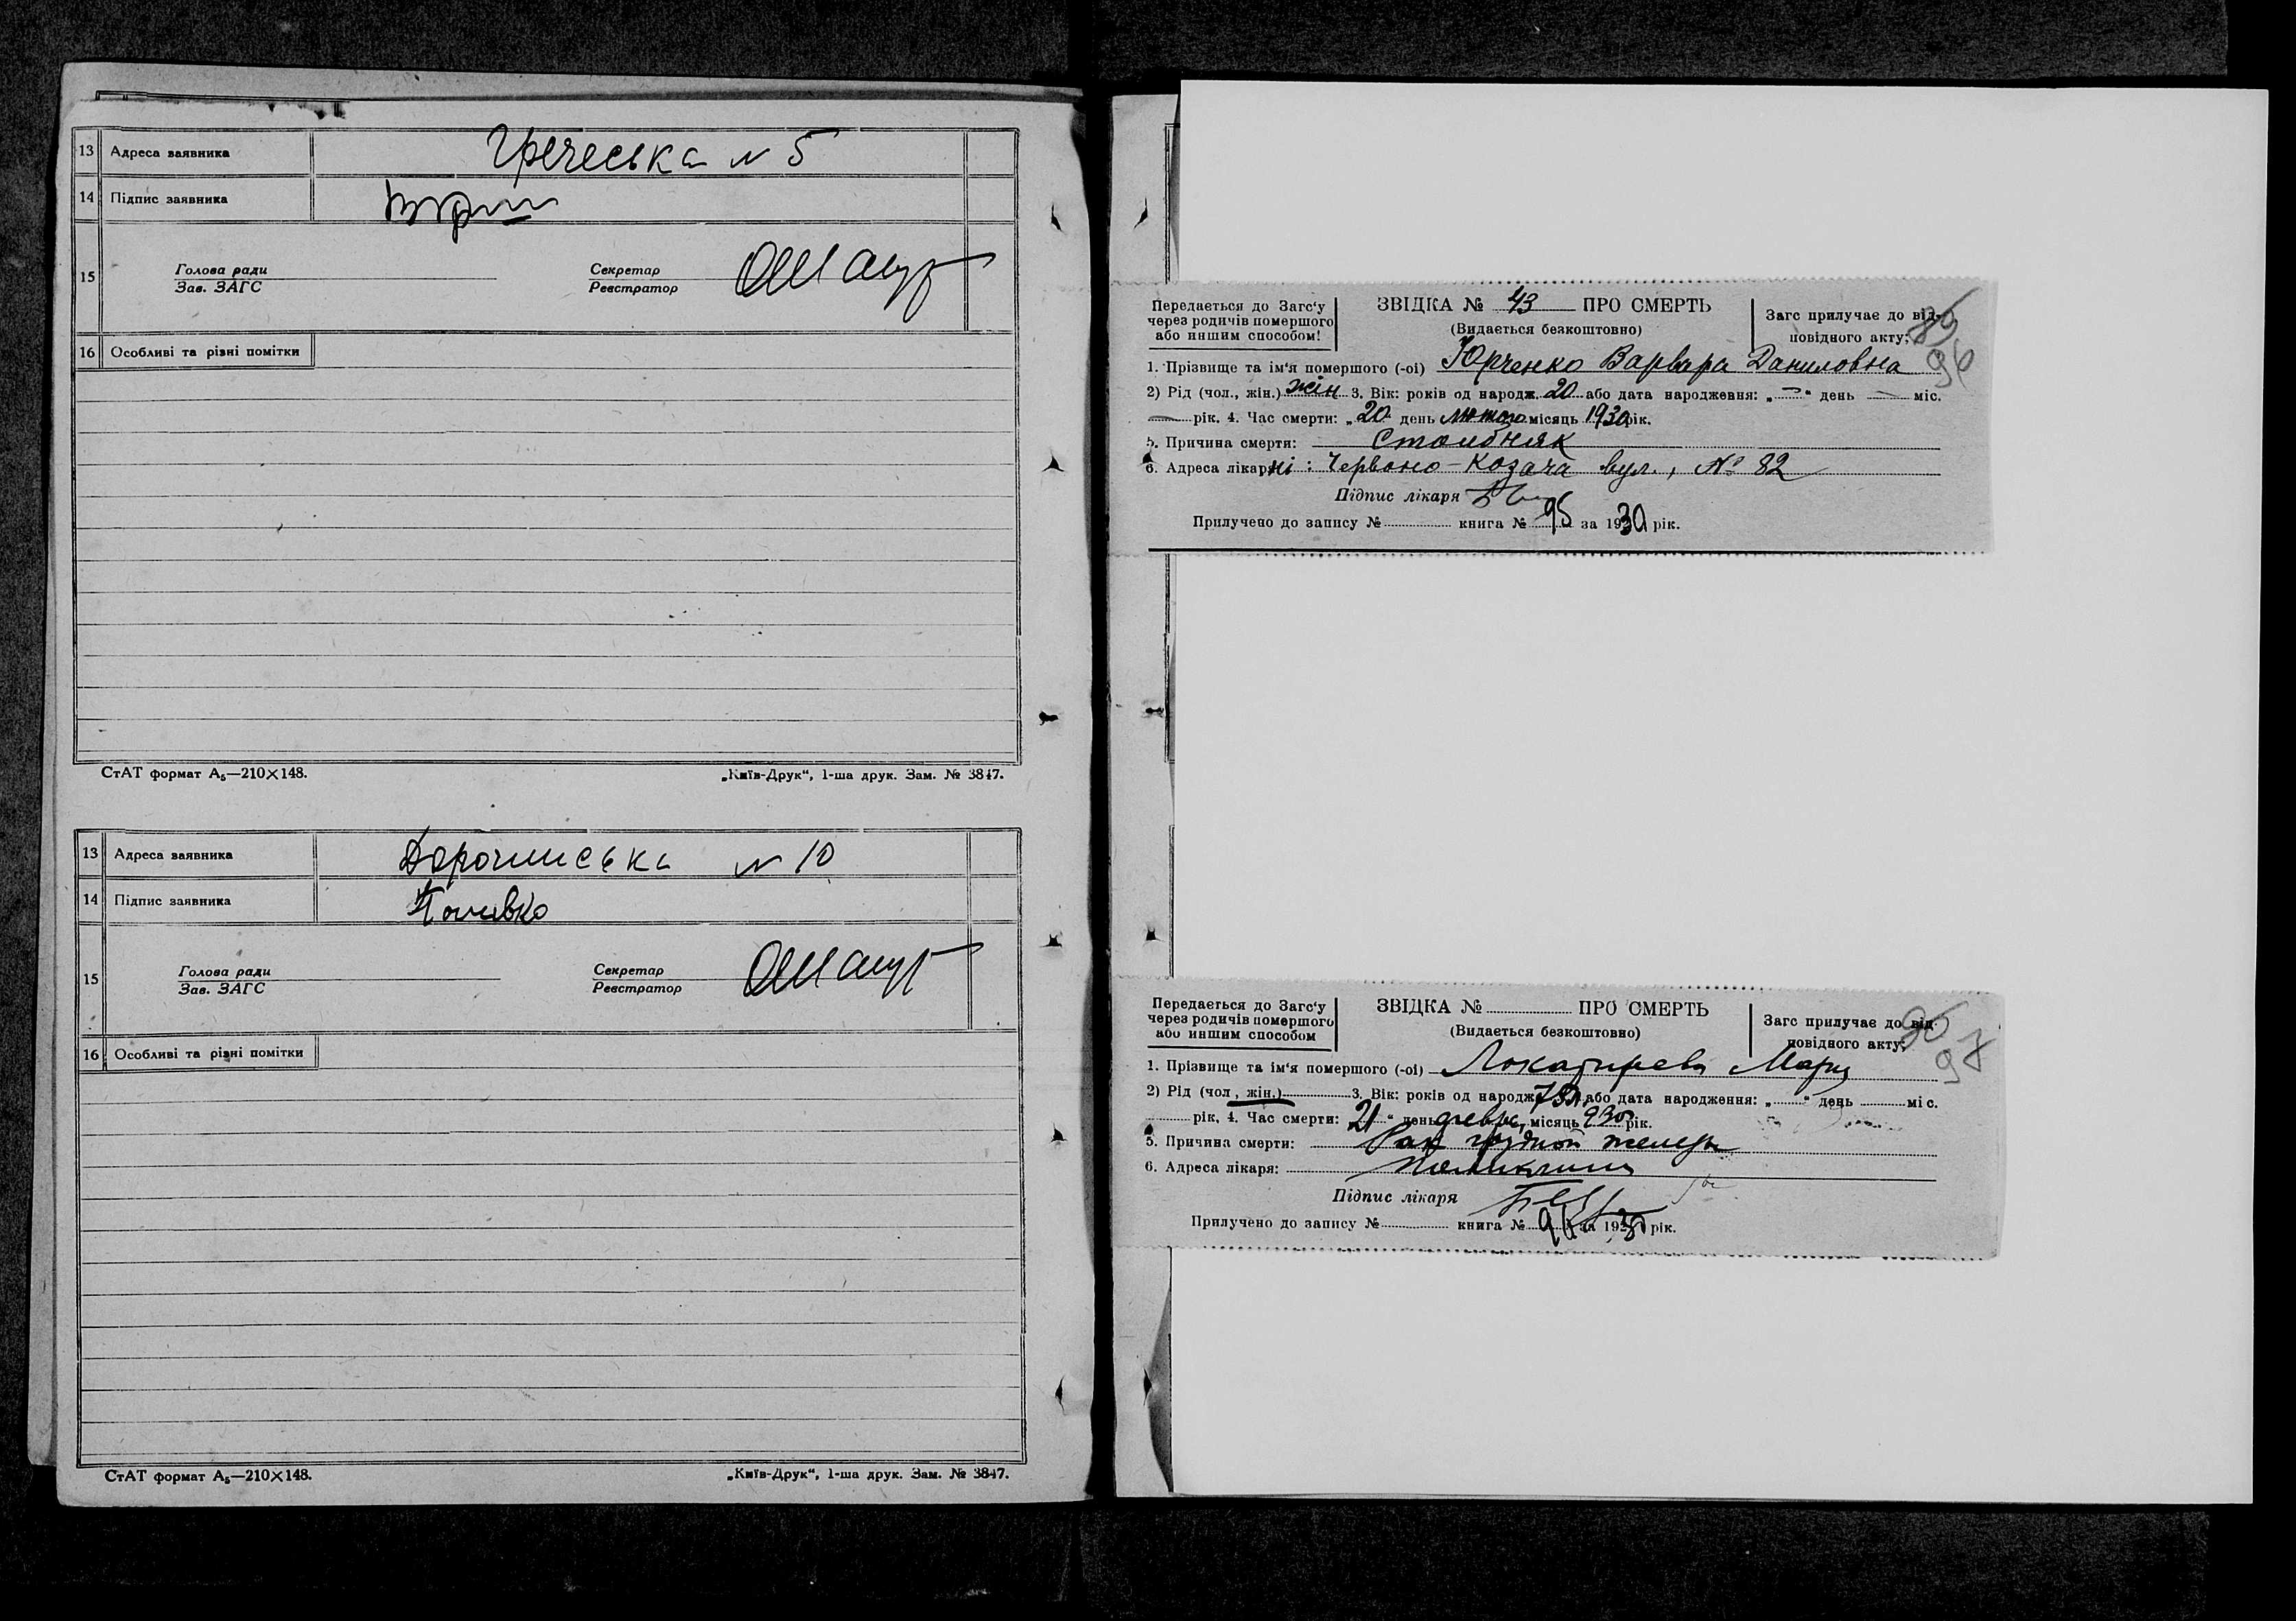 13 Адреса заявника Гречеська № 5
14 Підпис заявника
15 Голова ради Секретар
Зав. ЗАГС Реєстратор
16 Особливі та різні помітки
СтАТ формат А₅—210×148. „Київ-Друк“, 1-ша друк. Зам. № 3847.
13 Адреса заявника № 10
14 Підпис заявника
15 Голова ради Секретар
Зав. ЗАГС Реєстратор
16 Особливі та різні помітки
СтАТ формат А₅—210×148. „Київ-Друк“, 1-ша друк. Зам. № 3847.
Передається до Загс‘у
через родичів помершого
або иншим способом!
ЗВІДКА № 43 ПРО СМЕРТЬ
(Видається безкоштовно)
Загс прилучає до від-
повідного акту;
89
96
1. Прізвище та ім‘я помершого (-ої) Юрченко Варвара Даниловна
2) Рід (чол., жін.) жін 3. Вік: років од народж. 20 або дата народження: „—“ день — міс.
— рік. 4. Час смерти: „20 день лютого місяць 1930 рік.
5. Причина смерти: Столбняк
6. Адреса лікарні: Червоно-Козача вул., № 82
Підпис лікаря
Прилучено до запису № книга № 95 за 1930 рік.
Передається до Загс‘у
через родичів помершого
або иншим способом
ЗВІДКА № ПРО СМЕРТЬ
(Видається безкоштовно)
Загс прилучає до від-
повідного акту;
97
1. Прізвище та ім‘я помершого (-ої) Мария
2) Рід (чол, жін.) 3. Вік: років од народж. або дата народження: „ “ день міс.
рік. 4. Час смерти: 21 “ день февр, місяць 930 рік.
5. Причина смерти: Рак грудной железы
6. Адреса лікаря:
Підпис лікаря
Прилучено до запису № книга № 96 за 1930 рік.